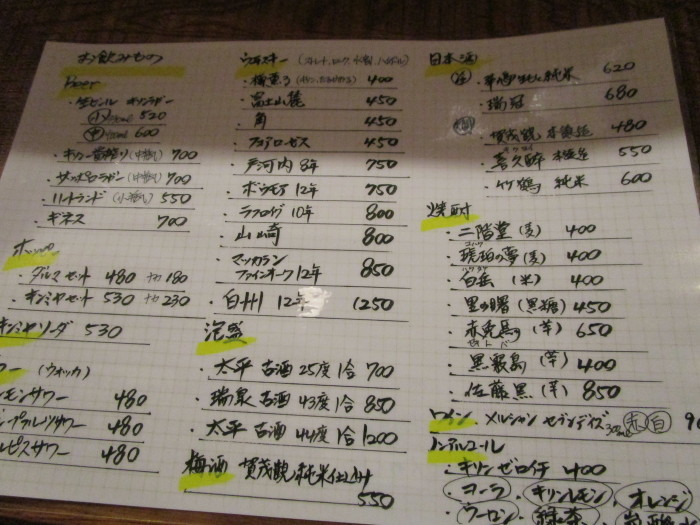 お飲みもの
Beer
・生ビール キリンラガー
小 520
中 600
・キリン一番搾り(中瓶) 700
・サッポロラガー(中瓶) 700
・ハートランド(小瓶) 550
・ギネス 700
ホッピー
・ダルマセット 480 ナカ180
・キンミヤセット 530 ナカ230
キンミヤソーダ 530
ワー(ウォッカ)
モンサワー 480
ープフルーツサワー 480
ルピスサワー 480
ウイスキー (ストレート,ロック,水割,ハイボール)
400
・富士山麓 450
・角 450
・フォアローゼス 450
・戸河内 8年 750
・ボウモア 12年 750
・ラフロイグ 10年 800
・山崎 800
・マッカラン
ファインオーク 12年 850
・白州 12年 1250
泡盛
・太平 古酒 25度 1合 700
・瑞泉 古酒 43度 1合 850
・太平 古酒 44度 1合 1200
梅酒 賀茂鶴 純米仕込み
550
日本酒
純米 620
・瑞冠 680
・賀茂鶴 本醸造 480
・喜久酔 本醸造 550
・竹鶴 純米 600
焼酎
・二階堂(麦) 400
コハク
・琥珀の夢(麦) 400
ハクタケ
・白岳(米) 400
・里の曙(黒糖) 450
・赤兎馬(芋) 650
・黒霧島(芋) 400
・佐藤黒(芋) 850
ワイン ・メルシャン セブンデイズ 300ml 赤 白
ノンアルコール
・キリンゼロイチ 400
・コーラ ・キリンレモン ・オレンジ
・ウーロン ・緑茶